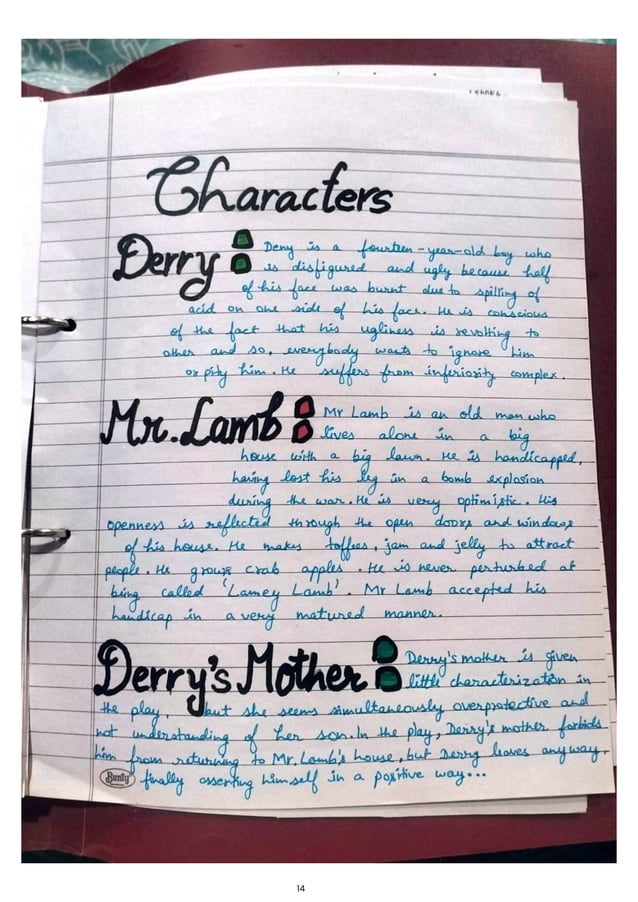 Characters
Derry : Derry is a fourteen-year-old boy who
is disfigured and ugly because half
of his face was burnt due to spilling of
acid on one side of his face. He is conscious
of the fact that his ugliness is revolting to
other and so, everybody wants to ignore him
or pity him. He suffers from inferiority complex.
Mr. Lamb : Mr Lamb is an old man who
lives alone in a big
house with a big lawn. He is handicapped,
having lost his leg in a bomb explosion
during the war. He is very optimistic. His
openness is reflected through the open doors and windows
of his house. He makes toffees, jam and jelly to attract
people. He grows crab apples. He is never perturbed at
being called 'Lamey Lamb'. Mr Lamb accepted his
handicap in a very matured manner.
Derry's Mother : Derry's mother is given
little characterization in
the play, but she seems simultaneously overprotective and
not understanding of her son. In the play, Derry's mother forbids
him from returning to Mr. Lamb's house, but Derry leaves anyway,
Bunty finally asserting himself in a positive way...
14